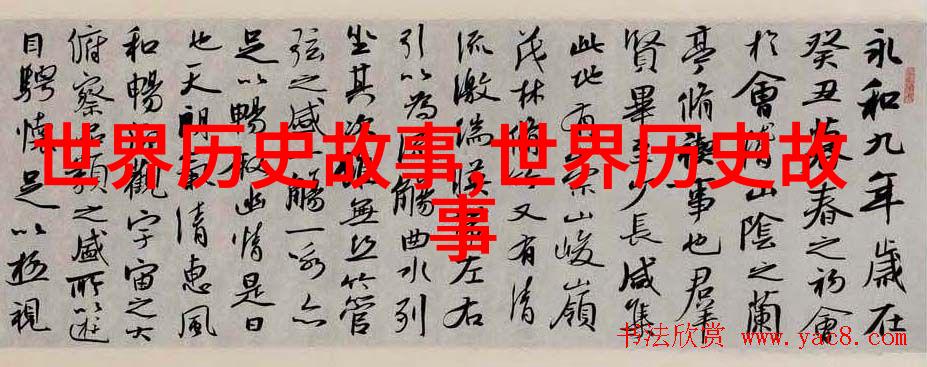 世界历史故事,世界历史故
事
永和九年歲在
癸丑暮春之初會
於會稽山陰之蘭
亭脩禊事也羣
賢畢至少長咸集
此地有崇山峻嶺
茂林脩竹又有清
流激湍暎帶左右
引以為流觴曲水列
坐其次雖無絲竹管
弦之盛一觴一詠亦
足以暢敘幽情是日
也天朗氣清惠風
和暢仰觀宇宙之大
俯察品類之盛所以遊
目騁懷足以極視
书法欣赏 www.yac8.com